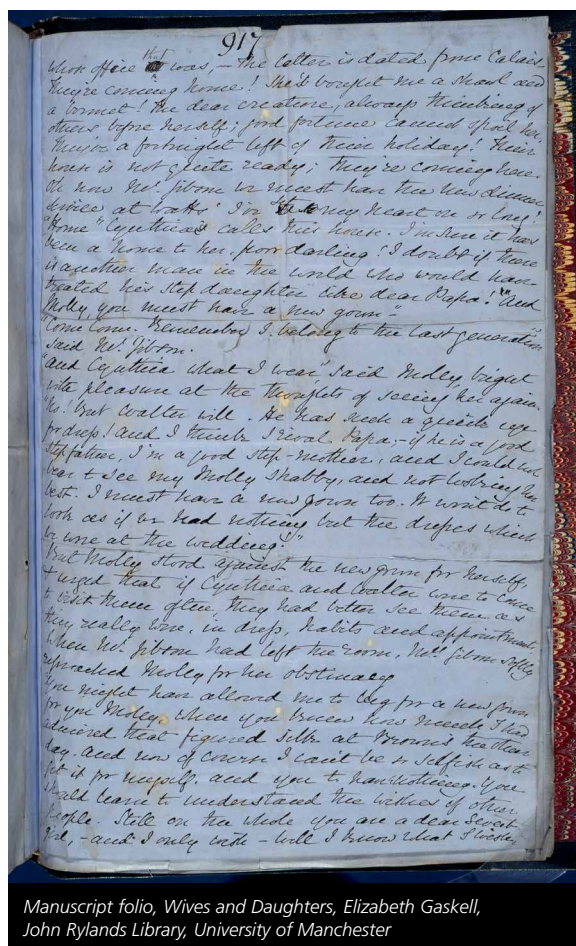 917
whose office that was, – the letter is dated from Calais.
They're coming home! She's bought me a shawl and
a bonnet! The dear creature, always thinking of
others before herself; good fortune cannot spoil her.
They've a fortnight left of their holiday! Their
house is not quite ready; they're coming here.
Oh now Mr. Gibson we must have the new dinner
service at Watts' I've set my heart on so long!
"Home" Cynthia calls this house. I'm sure it has
been a home to her, poor darling! I doubt if there
is another man in the world who would have
treated his step daughter like dear Papa! And
Molly, you must have a new gown–"
"Come come. Remember I belong to the last generation"
said Mr. Gibson.
"And Cynthia what I wear", said Molly, bright
with pleasure at the thoughts of seeing her again.
"No! but Walter will. He has such a quick eye
for dress! And I think I rival Papa; – if he is a good
stepfather, I'm a good step-mother, and I could not
bear to see my Molly shabby, and not looking her
best. I must have a new gown too. It won't do to
look as if we had nothing but the dresses which
we wore at the wedding!"
But Molly stood against the new gown for herself,
& urged that if Cynthia and Walter were to come
to visit them often, they had better see them as
they really were, in dress, habits and appointments.
When Mr. Gibson had left the room, Mrs. Gibson softly
reproached Molly for her obstinacy
You might have allowed me to beg for a new gown
for you Molly, when you knew how much I had
admired that figured silk at Brown's the other
day. And now of course I can't be so selfish as to
get it for myself, and you to have nothing. You
should learn to understand the wishes of other
people. Still on the whole you are a dear sweet
girl, – and I only wish – well I know what I wish;
Manuscript folio, Wives and Daughters, Elizabeth Gaskell,
John Rylands Library, University of Manchester